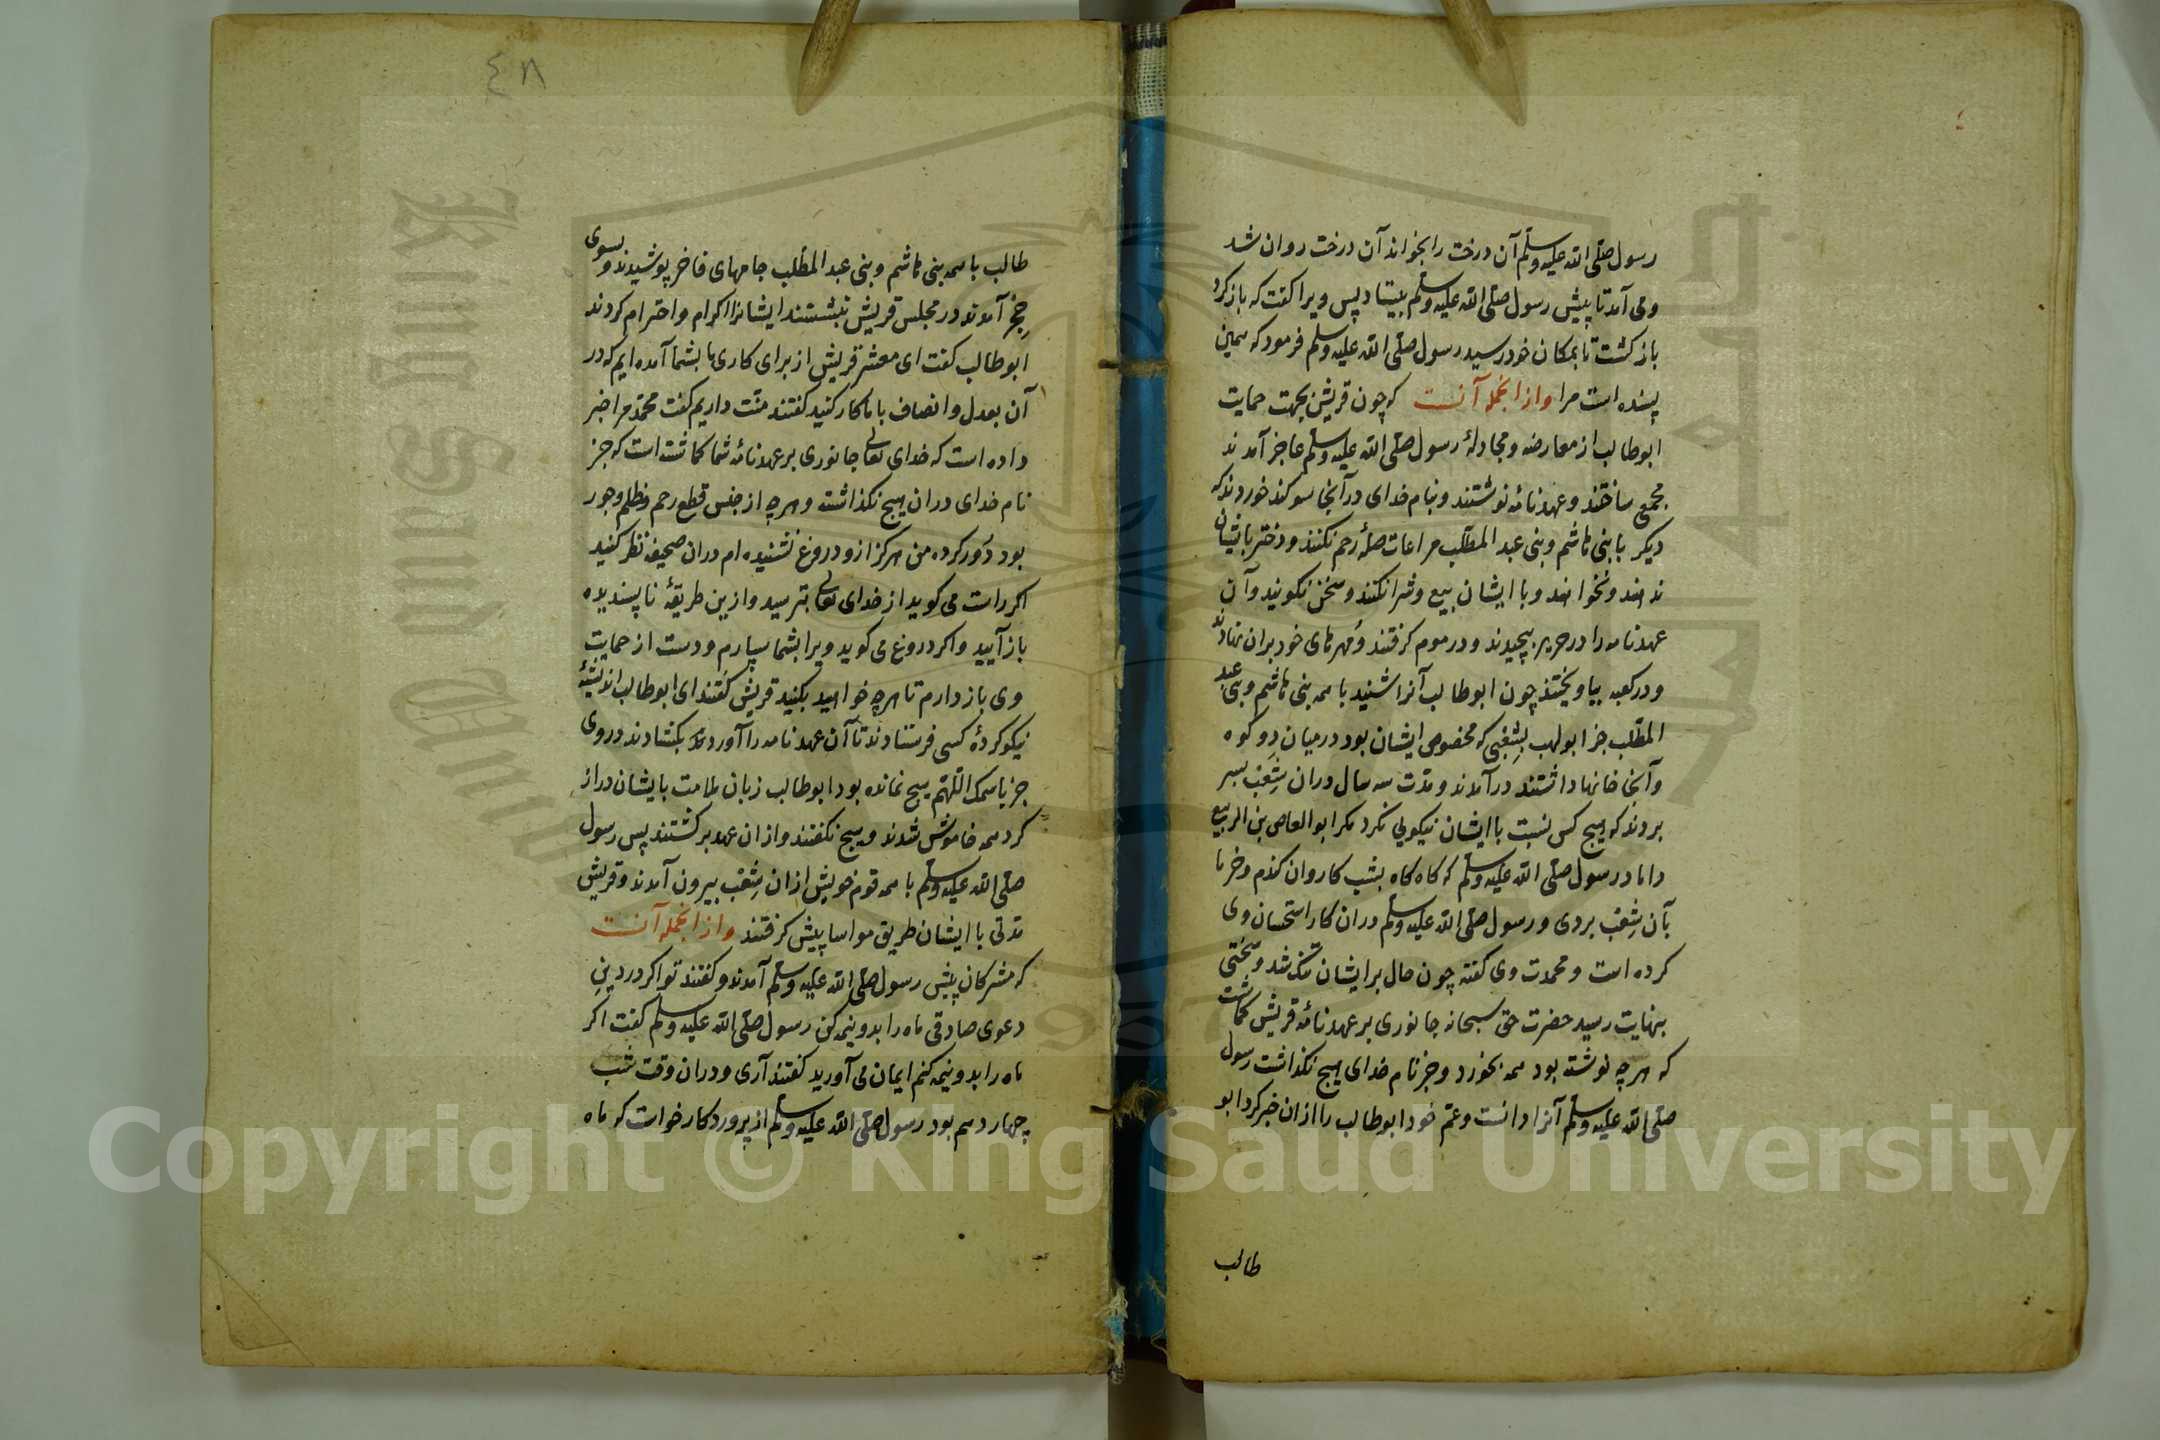 رسول صلی الله علیه وسلم آن درخت را بخواند آن درخت روان شد
ومی آمد تا پیش رسول صلی الله علیه وسلم بیستاد پس ویرا کفت که باز کرد
باز کشت تا بمکان خود رسید رسول صلی الله علیه وسلم فرمود که همین
پسنده است مرا وازانجمله آنست که چون قریش بجهت حمایت
ابوطالب از معارضه ومجادلۀ رسول صلی الله علیه وسلم عاجز آمدند
مجمع ساختند وعهدنامه نوشتند وبنام خدای درآنجا سوکند خوردند که
دیکر با بنی هاشم وبنی عبد المطلب مراعات صلۀ رحم نکنند ودختر بایشان
ندهند ونخواهند وبا ایشان بیع وشرا نکنند وسخن نکویند وآن
عهدنامه را در حریر پیچیدند ودر موم کرفتند ومهرهای خود بران نهادند
ودر کعبه بیاویختند چون ابوطالب آنرا شنید با همه بنی هاشم وبنی عبد
المطلب جز ابولهب بشعبی که مخصوص ایشان بود درمیان دو کوه
وآنجا خانها داشتند درآمدند ومدت سه سال دران شعب بسر
بردند که هیچ کس نسبت با ایشان نیکویی نکرد مکر ابوالعاص بن الربیع
داماد رسول صلی الله علیه وسلم که کاه کاه بشب کاروان کندم وخرما
بآن شعب بردی ورسول صلی الله علیه وسلم دران کار استحسان وی
کرده است ومحمدت وی کفته چون حال برایشان تنک شد وسختی
بنهایت رسید حضرت حق سبحانه جانوری بر عهدنامۀ قریش کماشت
که هرچه نوشته بود همه بخورد وجز نام خدای هیچ نکذاشت رسول
صلی الله علیه وسلم آنرا دانست وعم خود ابوطالب را ازان خبر کرد ابو
طالب
٤٨
طالب با همه بنی هاشم وبنی عبد المطلب جامهای فاخر پوشیدند وبسوی
حجر آمدند ودر مجلس قریش بنشستند ایشانرا اکرام واحترام کردند
ابوطالب کفت ای معشر قریش از برای کاری ما بشما آمده ایم که در
آن بعدل وانصاف با ما کار کنید کفتند منت داریم کفت محمد مرا خبر
داده است که خدای تعالی جانوری بر عهدنامۀ شما کماشته است که جز
نام خدای دران هیچ نکذاشته وهرچه از جنس قطع رحم وظلم وجور
بود دور کرده من هرکز ازو دروغ نشنیده ام دران صحیفه نظر کنید
اکر راست می کوید از خدای تعالی بترسید وازین طریقۀ ناپسندیده
بازآیید واکر دروغ می کوید ویرا بشما سپارم ودست از حمایت
وی باز دارم تا هرچه خواهید بکنید قریش کفتند ای ابوطالب اندیشۀ
نیکو کردۀ کسی فرستادند تا آن عهدنامه را آوردند بکشادند دروی
جز باسمک اللهم هیچ نمانده بود ابوطالب زبان ملامت بایشان دراز
کرد همه خاموش شدند وهیچ نکفتند وازان عهد برکشتند پس رسول
صلی الله علیه وسلم با همه قوم خویش ازان شعب بیرون آمدند وقریش
مدتی با ایشان طریق مواسا پیش کرفتند وازانجمله آنست
که مشرکان پیش رسول صلی الله علیه وسلم آمدند وکفتند تو اکر در دین
دعوی صادقی ماه را بدو نیم کن رسول صلی الله علیه وسلم کفت اکر
ماه را بدو نیم کنم ایمان می آورید کفتند آری ودران وقت شب
چهاردهم بود رسول صلی الله علیه وسلم از پروردکار خواست که ماه
Copyright © King Saud University